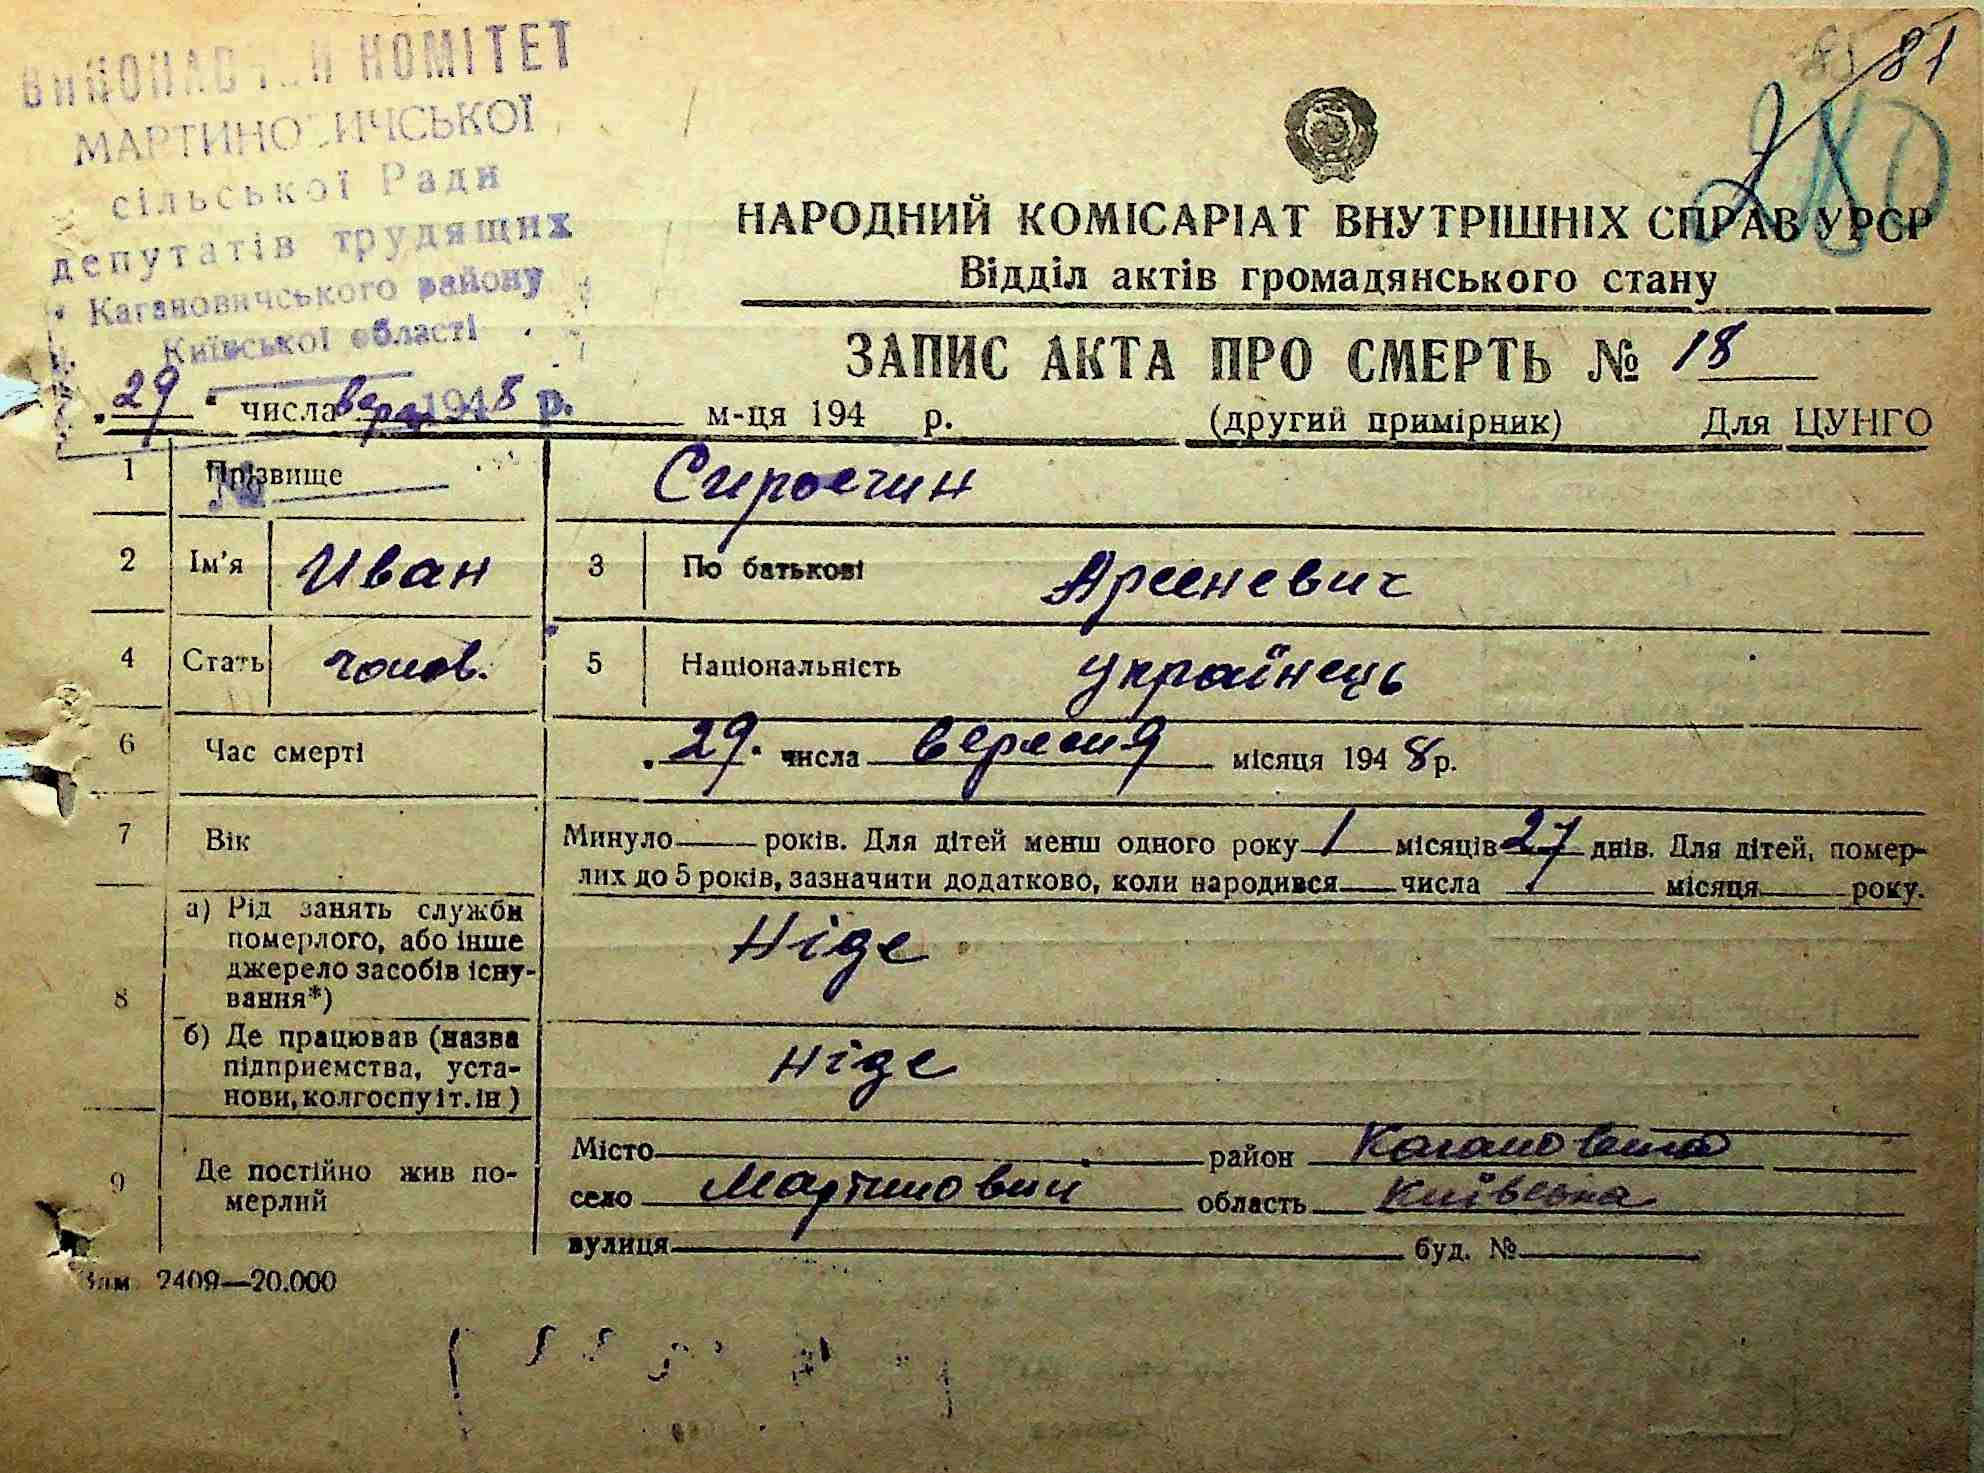 81
280
КОМІТЕТ
МАРТИНОВИЧСЬКОЇ
сільської Ради
депутатів трудящих
Кагановичського району
Київської області
НАРОДНИЙ КОМІСАРІАТ ВНУТРІШНІХ СПРАВ УРСР
Відділ актів громадянського стану
ЗАПИС АКТА ПРО СМЕРТЬ № 18
29 числа вер 1948 р. м-ця 194 р. (другий примірник) Для ЦУНГО
1 Прізвище Сироечин
2 Ім'я Иван 3 По батькові Арсеневич
4 Стать чолов. 5 Національність українець
6 Час смерті 29. числа вересня місяця 1948 р.
7 Вік Минуло — років. Для дітей менш одного року 1 місяців 27 днів. Для дітей, помер-
лих до 5 років, зазначити додатково, коли народився — числа — місяця — року.
8 а) Рід занять служби
померлого, або інше
джерело засобів існу-
вання*)
Ніде
б) Де працював (назва
підприємства, уста-
нови, колгоспу і т. ін)
Ніде
9 Де постійно жив по-
мерлий
Місто — район Кагановича
село Мартинович область Київська
вулиця — буд. № —
Зам 2409—20.000